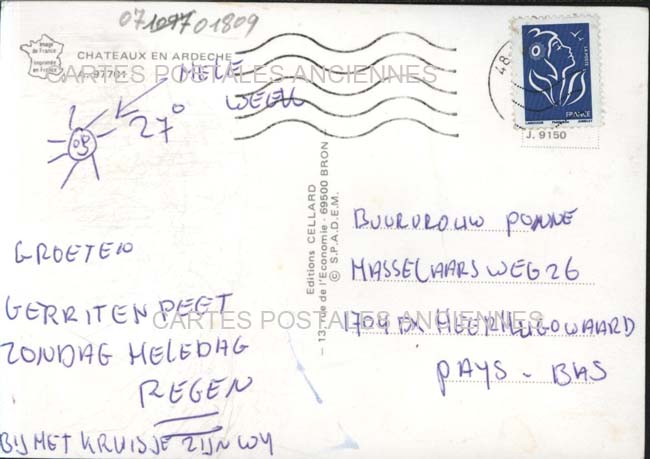 071077 01809
Image
de France
Imprimée
en France
CHATEAUX EN ARDECHE
P 97701
CARTES POSTALES ANCIENNES
HELE
WEEK
27°
GROETEN
GERRIT EN PEET
ZONDAG HELEDAG
REGEN
BIJ HET KRUISJE ZIJN WY
Editions CELLARD
13, rue de l'Economie - 69500 BRON -
© S.P.A.D.E.M.
48
LA POSTE
FRANCE
J. 9150
BUURVROUW PONNE
HASSELAARSWEG 26
1704 DX HEERHUGOWAARD
PAYS-BAS
CARTES POSTALES ANCIENNES